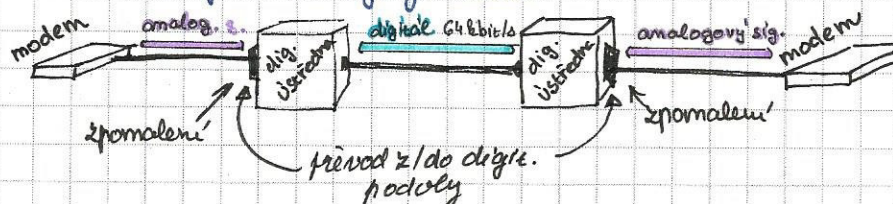 modem
analog. s.
dig. ústředna
digitál 64kbit/s
dig. ústředna
analogový sig.
modem
zpomalení
zpomalení
převod z/do digit.
podoby